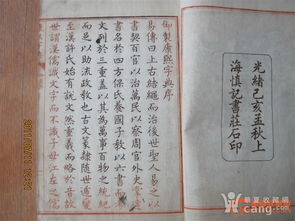 光緒己亥孟秋上
海慎記書莊石印
御製康熙字典序
易傳曰上古結繩而治後世聖人易之以
書契百官以治萬民以察周官外史掌達
書名於四方保氏養國子教以六書而考
文列於三重蓋以其為萬事百物之統紀
而足以助流政教也古文篆隸隨世遞變
至漢許氏始有說文然重義而略於音故
世謂漢儒識文字而不識子母江左之儒
cang.com